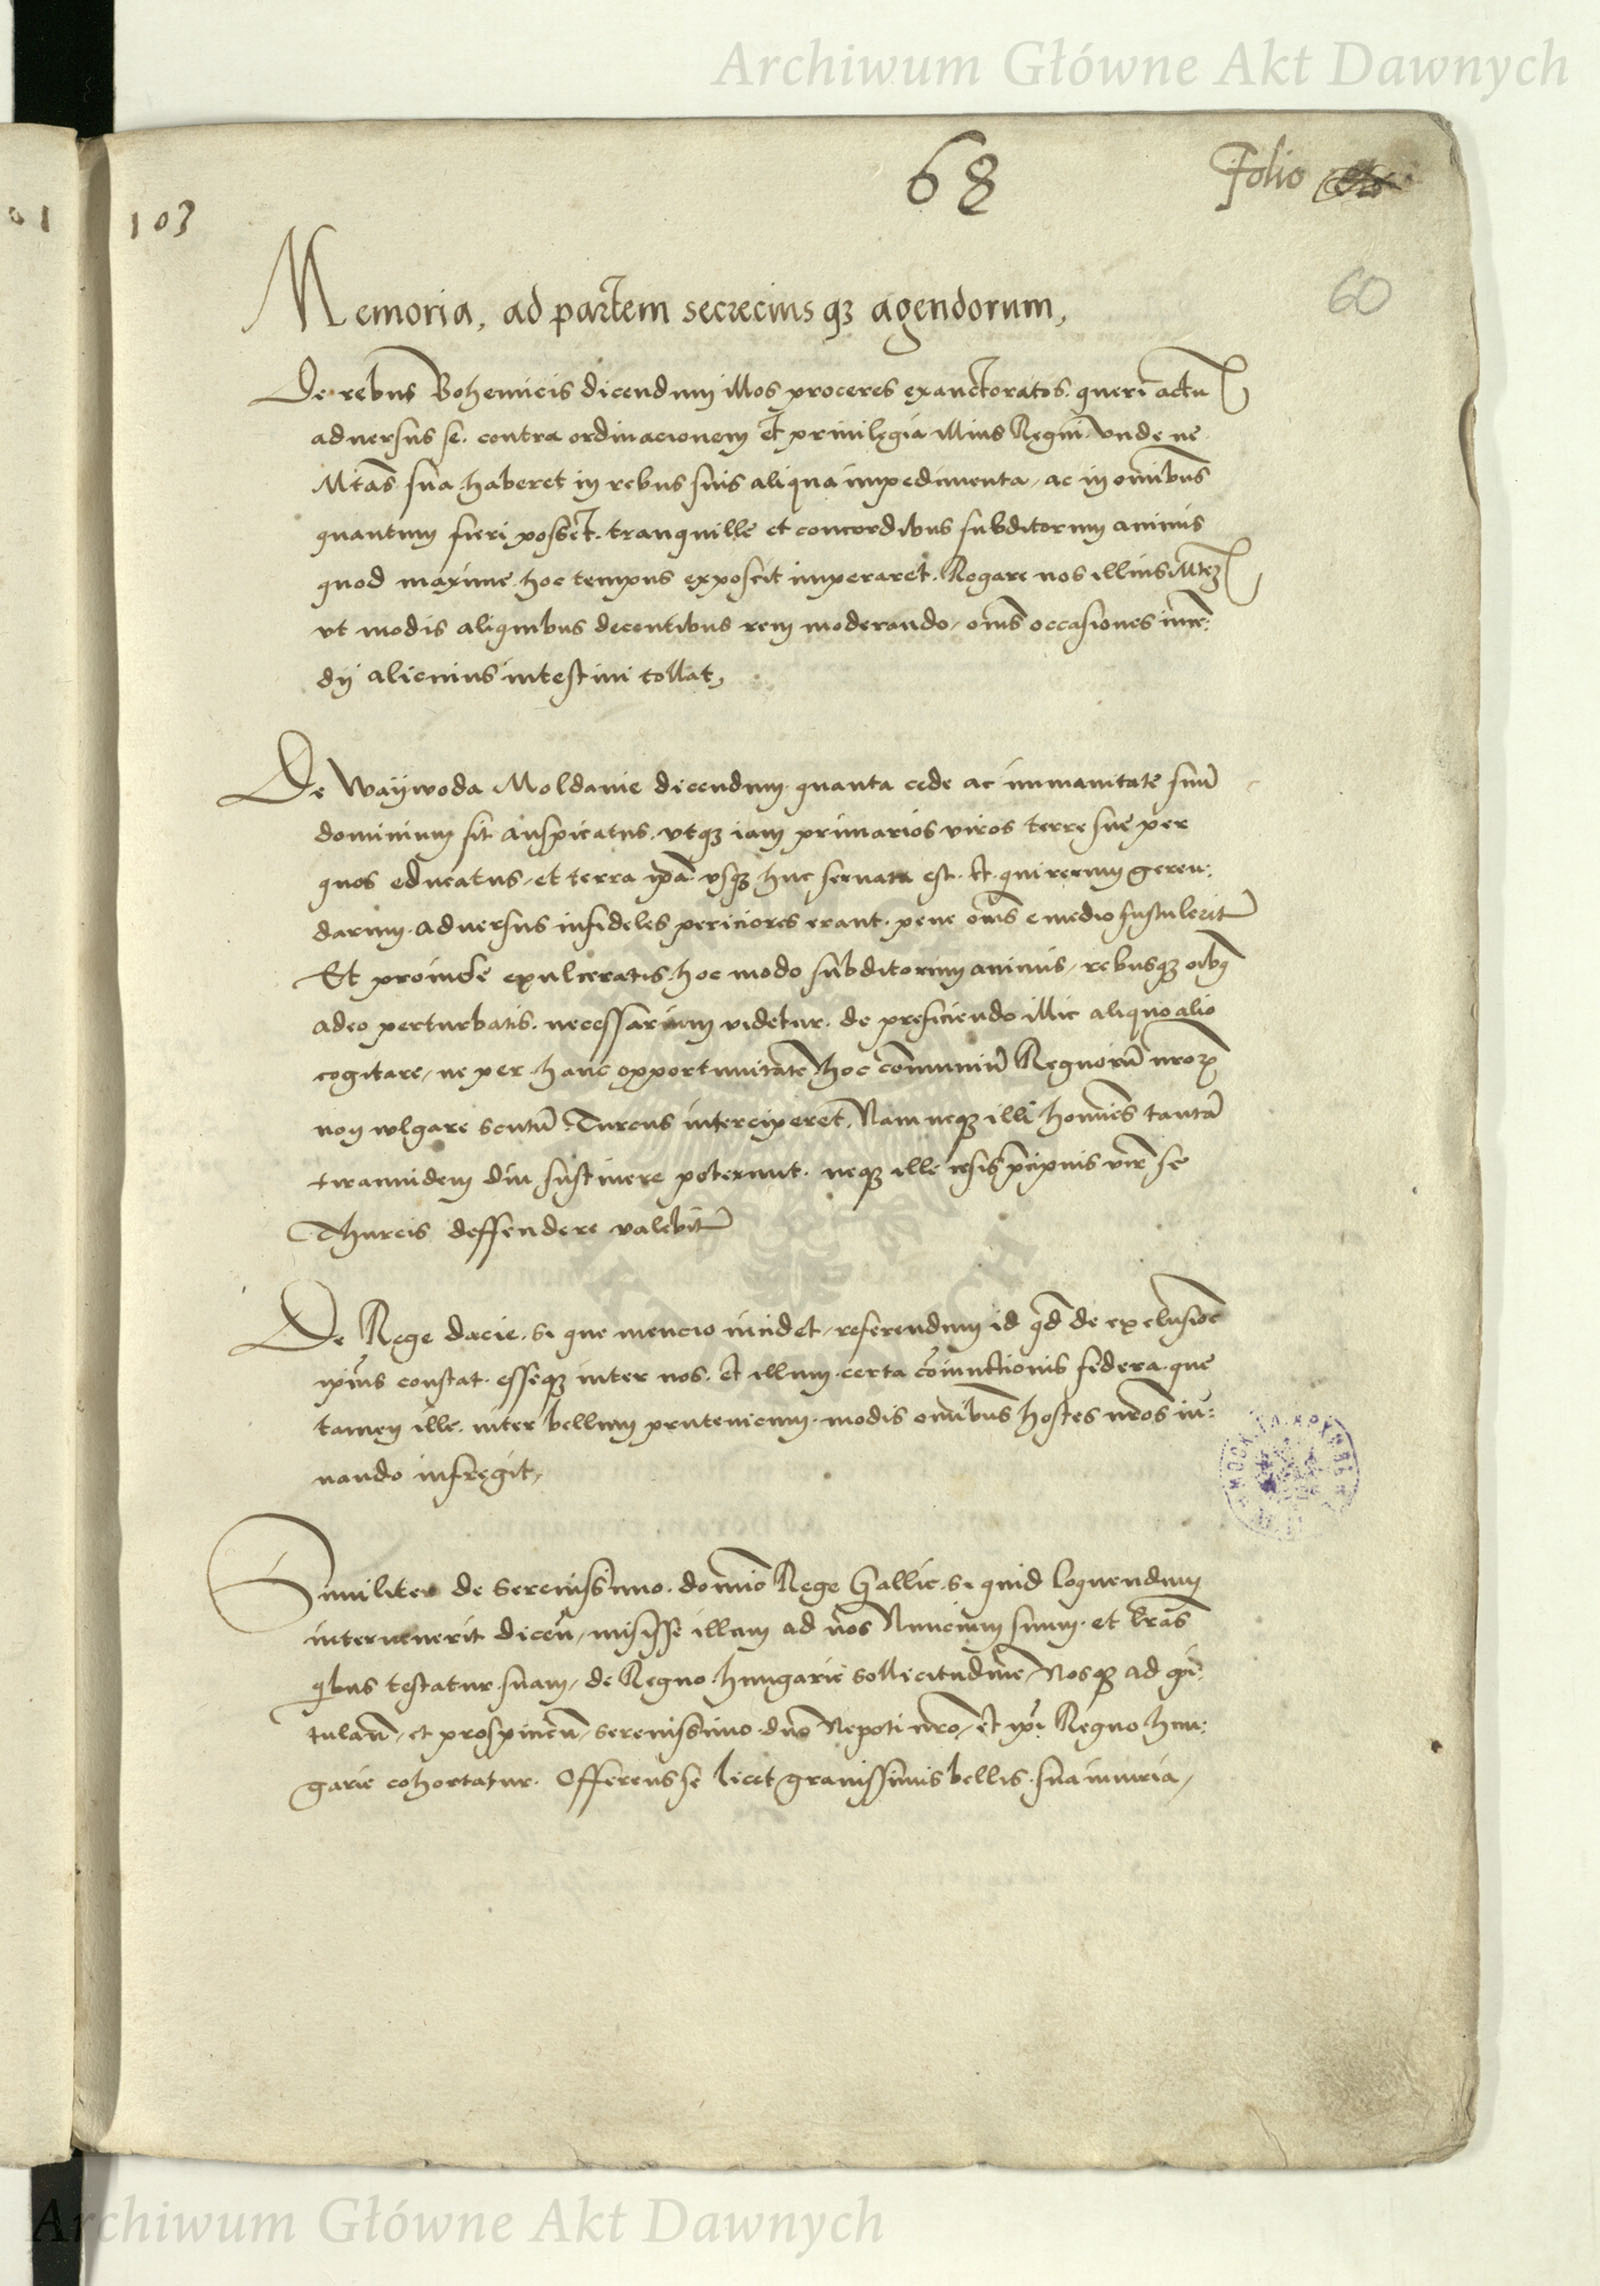 Archiwum Główne Akt Dawnych
68
Folio
01
103
60
Memoria, ad partem secrecius qz agendorum,
De rebus Bohemicis dicendum illos proceres exauctoratos queri actu
adversus se. contra ordinacionem et privilegia illius Regni. Unde ne
Mtas sua haberet in rebus suis aliqua impedimenta, ac in omnibus
quantum fieri posset. tranquille et concordibus subditorum animis
quod maxime hoc tempus exposcit imperaret. Rogare nos illius Mtez
vt modis aliquibus decentibus rem moderando, oms occasiones ince:
dij alicuius intestini tollat,
De Waywoda Moldavie dicendum quanta cede ac inmanitate suu
dominium sit auspicatus. vtqz iam primarios viros terre sue per
quos educatus, et terra ipa vsqz huc servata est. et qui rerum geren:
darum adversus infideles periciores erant. pene oms e medio sustulerit
Et proinde exulceratis hoc modo subditorum animis, rebusqz oibq
adeo perturbatis. necessarium videtur. de preficiendo illic aliquo alio
cogitare, ne per hanc opportunitate hoc comuniu Regnoru nror
non vulgare scutu Turcus interciperet. Nam neqz illi homies tanta
tirannidem diu sustinere poterunt. neqz ille cesis pcipuis vir se
Thurcis deffendere valebit
De Rege dacie. si que mencio incidet, referendum id qd de exclusioe
ipius constat. esseqz inter nos. et illum certa coiunctionis federa que
tamen ille. inter bellum prutenicum modis omnibus hostes nros iu:
vando infregit,
Similiter de Serenissimo. domio Rege Gallie. si quid loquendum
intervenerit dicen, misisse illam ad nos Nuncium suum. et lras
qbus testatur suam, de Regno hungarie sollicitudine, Nosqz ad
tulan, et prospicien, Serenissimo dno Nepoti nro, et ipi Regno hun:
garie cohortatur. Offerens se licet gravissimis bellis. sua iniuria,
Archiwum Główne Akt Dawnych